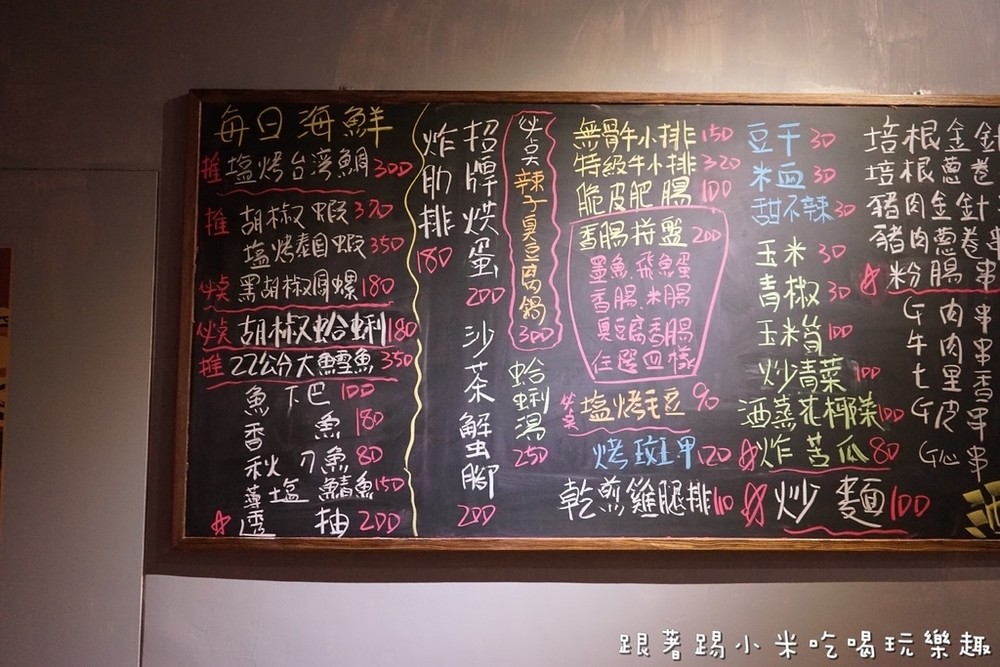 每日海鮮
推 塩烤台湾鯛 300
推 胡椒蝦 370
塩烤泰国蝦 350
必点 黑胡椒鳳螺 180
必点 胡椒蛤蜊 180
推 22公分大鱈魚 350
魚下巴 100
香魚 180
秋刀魚 80
薄塩鯖魚 150
透抽 200
炸肋排 180
招牌烘蛋 200
沙茶蟹腳 200
必点 辣子臭豆腐鍋 300
蛤蜊湯 250
無骨牛小排 150
特級牛小排 320
脆皮肥腸 100
香腸拼盤 200
墨魚.飛魚蛋
香腸.米腸
臭豆腐香腸
任選四樣
必点 塩烤毛豆 90
烤斑甲 120
乾煎雞腿排 110
豆干 30
米血 30
甜不辣 30
玉米 30
青椒 30
玉米筍 100
炒青菜 100
酒蒸花椰菜 100
炸苦瓜 80
炒麵 100
培根金針
培根蔥卷
豬肉金針
豬肉蔥卷串
粉腸串
肉串
牛肉串
七里香串
皮串
心串
跟著踢小米吃喝玩樂趣